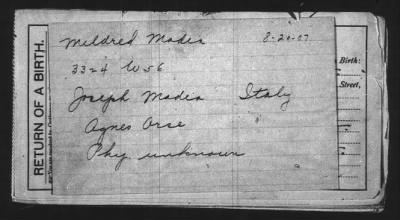 Meldred Madia 8-20-07
33=4 W 56
Joseph Madia Italy
Agnes Orse
Phy unknown
RETURN OF A BIRTH.
Birth:
Street,